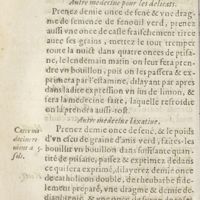 Autre medecine pour les delicats.
Prenez demie once de sené & vne drag
me de semence de fenouil verd, prenez
aussi vne once de casse fraischement tirée
auec ses grains, mettez le tout trempe
toute la nuict dans quatre onces de ptisa-
ne, le lendemain matin on leur fera pren
dre vn boüillon, puis on les passera & ex-
primera par l'estamine, delayant par apres
dans ladite expression vn fin de limon, &
sera la medecine faite, laquelle refroidie
on la prendra aussi tost.
Autre medecine laxatiue.
Prenez demie once de sené, & le poids
d'vn escu de graine d'anis verd, faites les
boüillir vn boüillon dans suffisante quan-
tité de ptisane, passez & exprimez dedans
ce qui sera exprimé, dilayerez demie once
de catholicon double, der herbe fidele-
lement preparé, vne dragme & demie de
diaphenic, & vne once dissoute de
Cette me
decine co
uient à